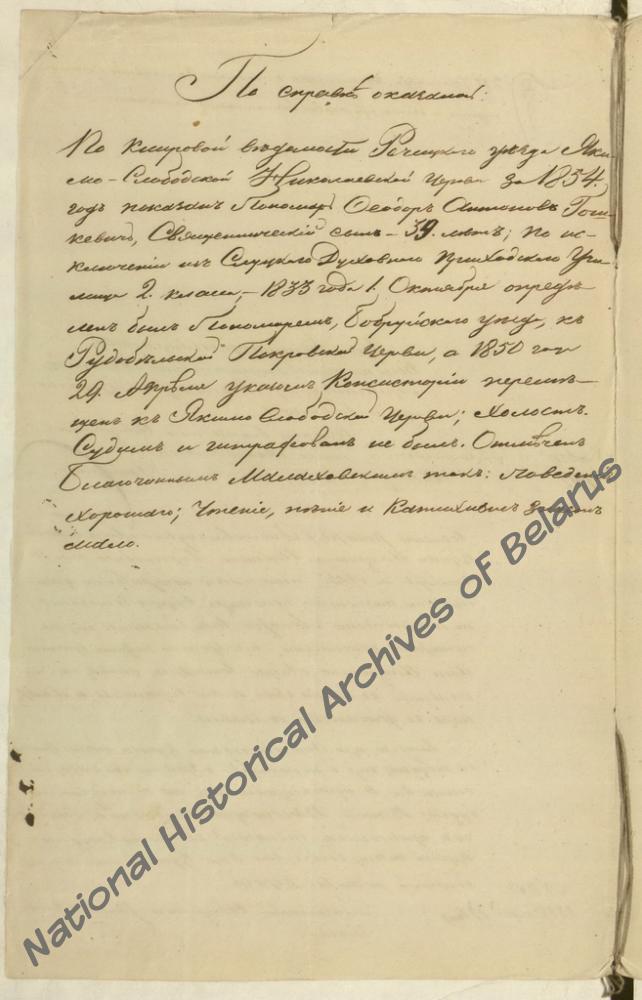 По справкѣ оказалось:
По клировой вѣдомости Рѣчицкаго уѣзда Яки-
мо-Слободской Николаевской Церкви за 1854.
годъ показанъ Пономарь Ѳеодоръ Антоновъ Гош-
кевичь, Священническій сынъ - 39. лѣтъ; по ис-
ключеніи изъ Слуцкаго Духовнаго Приходскаго Учи-
лища 2. класса, - 1833 года 1. Октября опредѣ-
ленъ былъ Пономаремъ, Бобруйскаго уѣзда, къ
Рудобѣльской Покровской Церкви, а 1850 года
29. Апрѣля указомъ Консисторіи перемѣ-
щенъ къ Якимо Слободской Церкви; холостъ.
Судимъ и штрафованъ не былъ. Отмѣченъ
Благочиннымъ Малаховскимъ такъ: поведенія
хорошаго; чтеніе, пѣніе и Катихизисъ знаетъ
мало.
National Historical Archives of Belarus